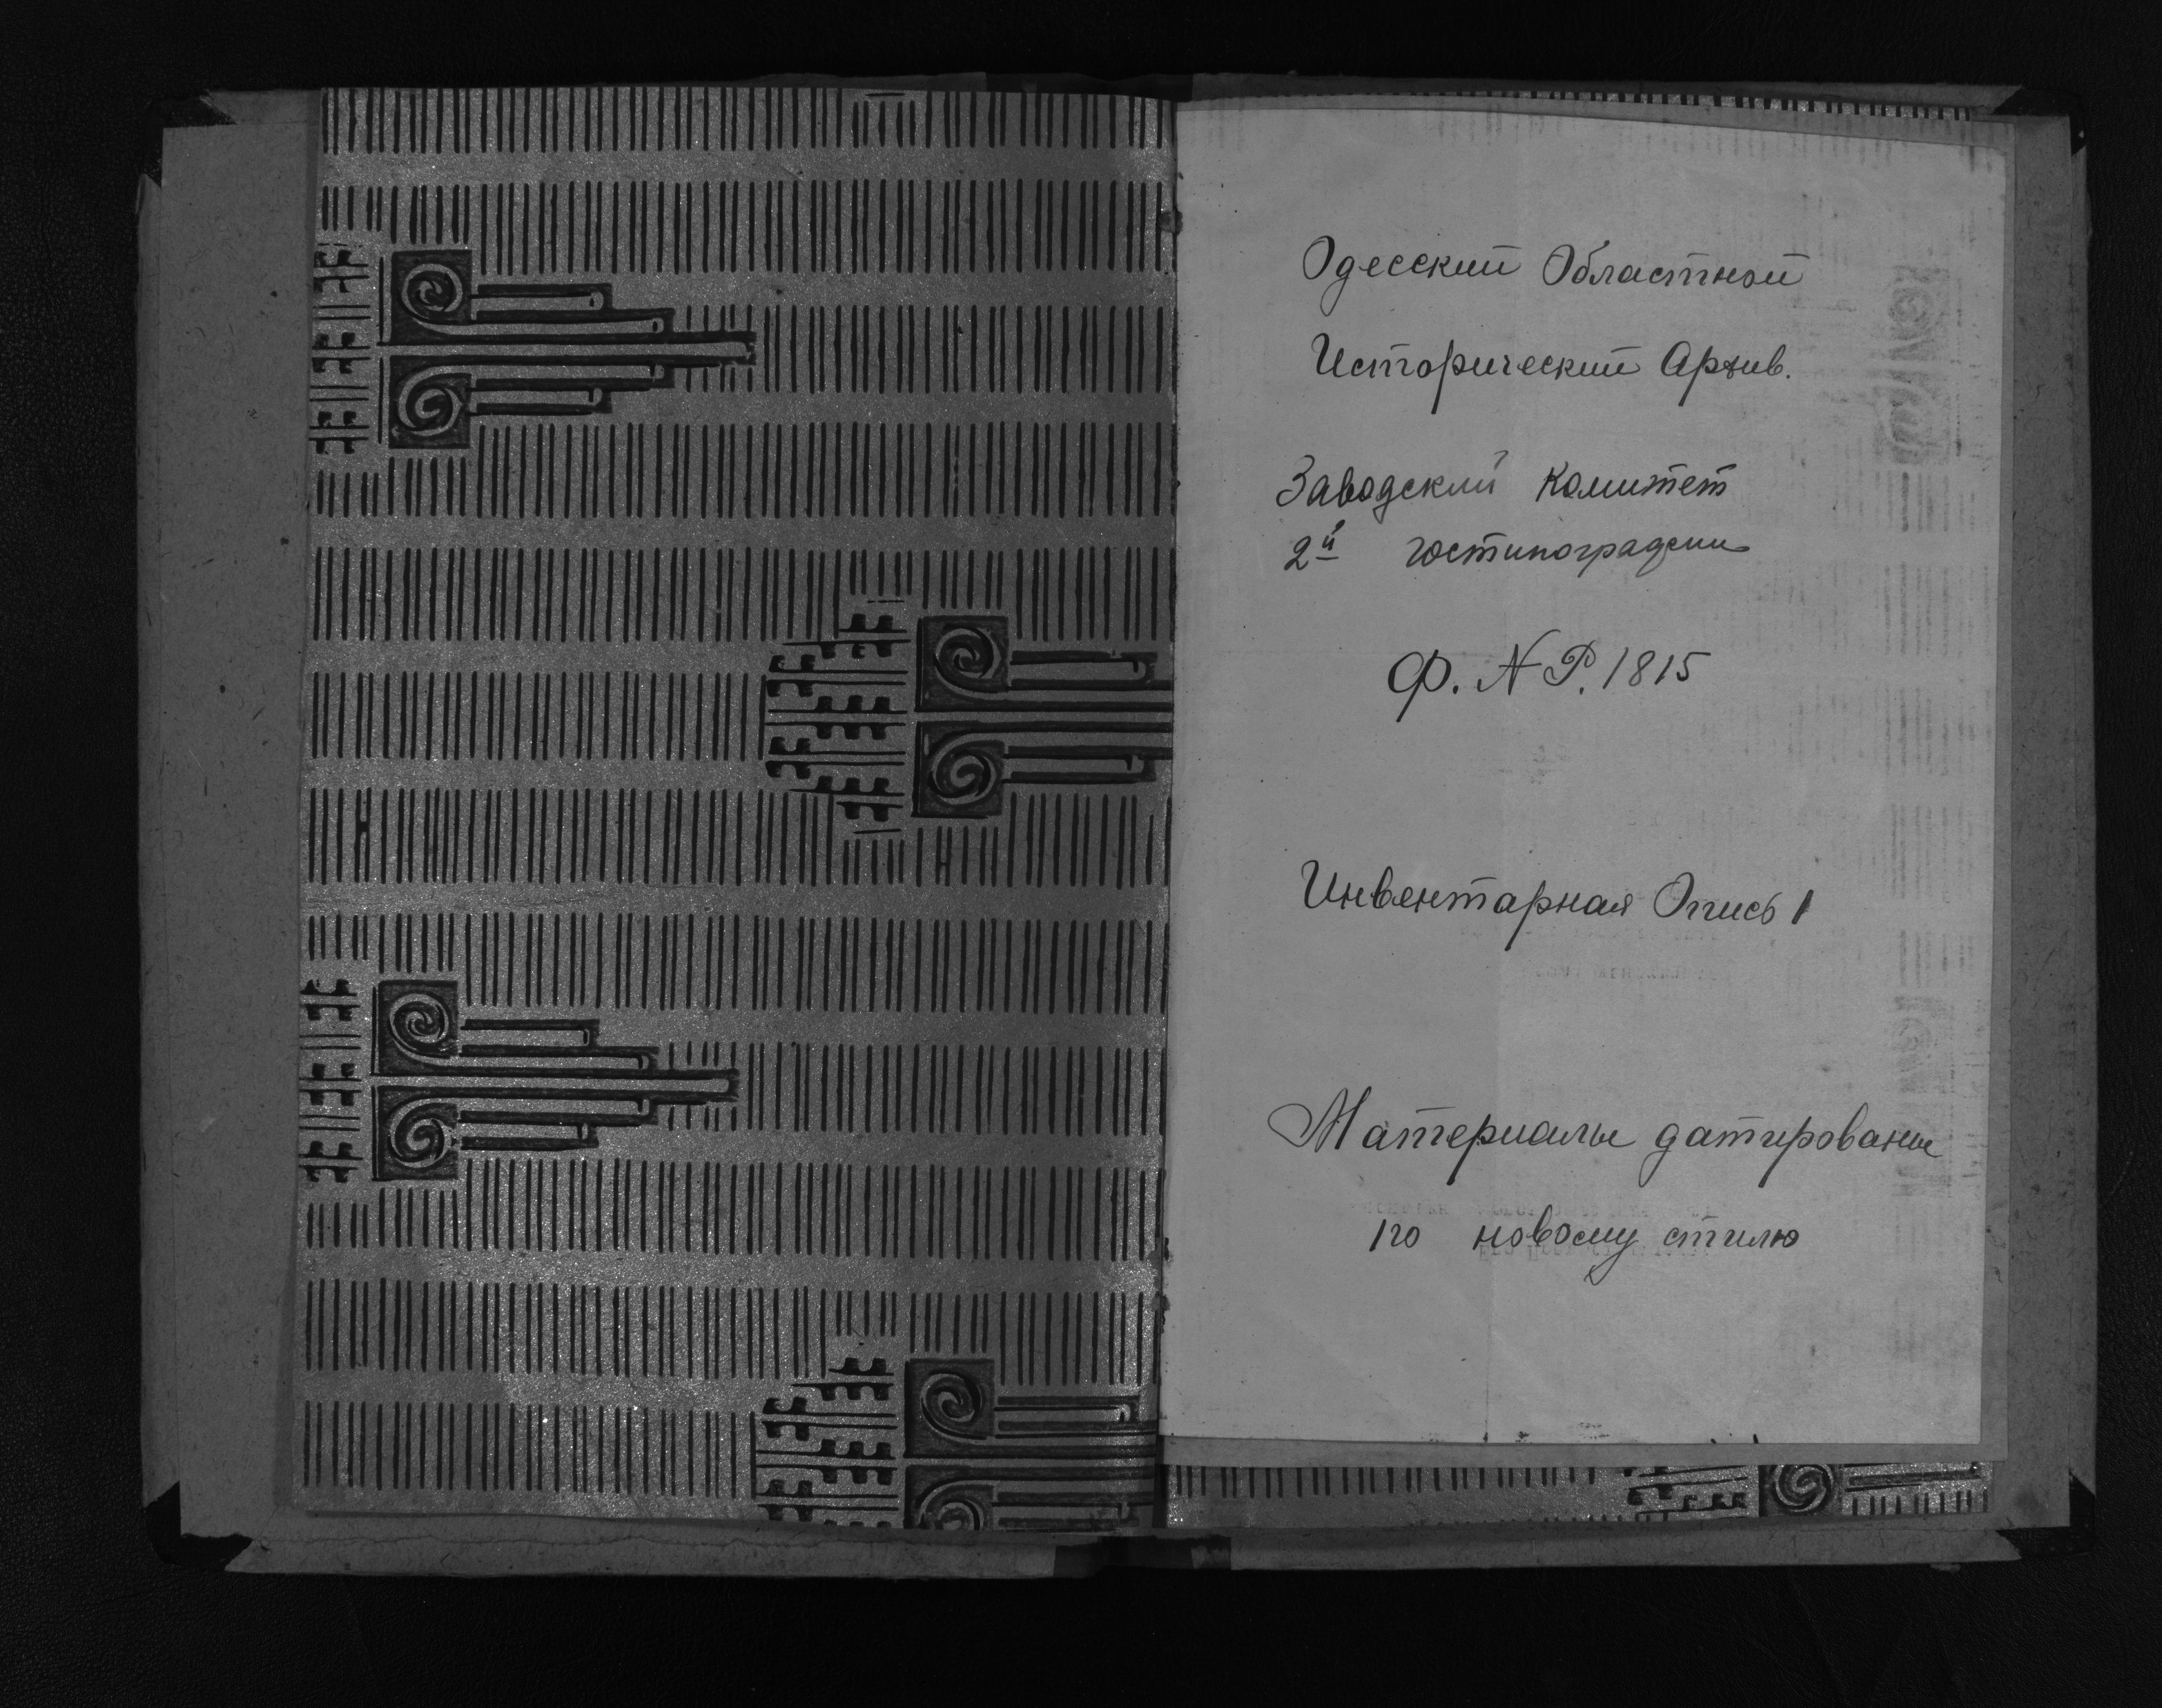 Одесский Областной
Исторический Архив.
Заводский Комитет
2й гостипографии
Ф. N Р. 1815
Инвентарная Опись 1
Материалы датированы
по новому стилю